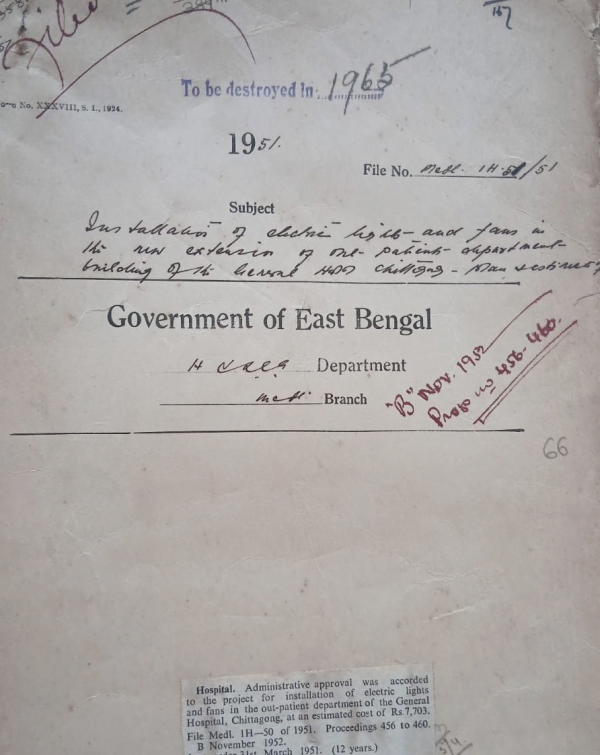 167
To be destroyed in 1965
No. XXXVIII, S. I., 1924.
1951.
File No. Medl. 1H-50/51
Subject
Installation of electric lights and fans in
the new extension of out-patients department
building of the General Hospl Chittagong - Plan & estimate
Government of East Bengal
Department
Medl. Branch
"B" Nov. 1952
Progs no 456-460.
66
Hospital. Administrative approval was accorded
to the project for installation of electric lights
and fans in the out-patient department of the General
Hospital, Chittagong, at an estimated cost of Rs.7,703.
File Medl. 1H—50 of 1951. Proceedings 456 to 460.
B November 1952.
31st March 1951. (12 years.)